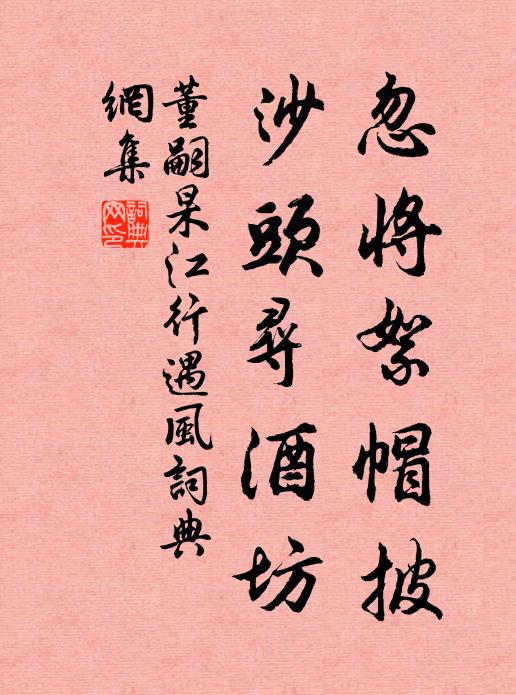 忽將絮帽披
沙頭尋酒坊
董嗣杲江行遇風詞典
網集
詞典網印